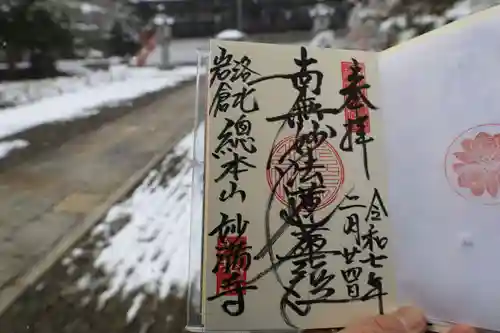 奉拝
令和七年
二月廿四日
南無妙法蓮華経
洛北
岩倉
總本山
妙満寺